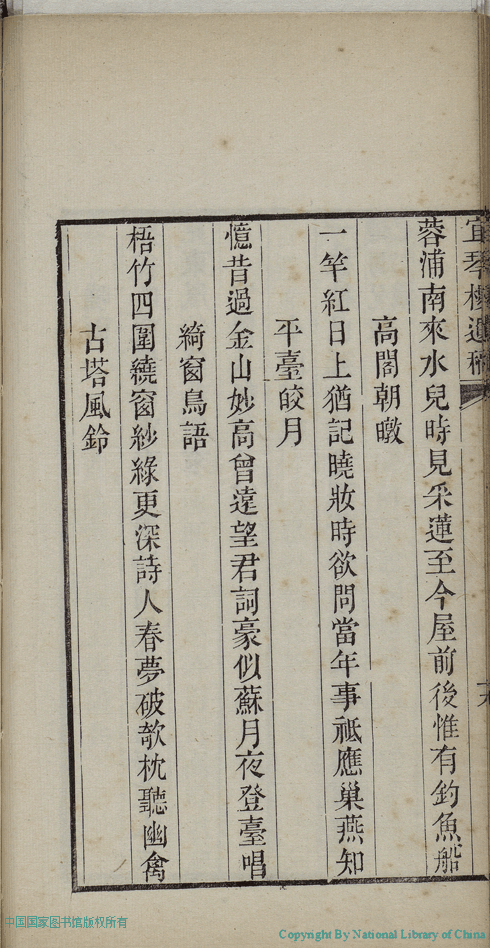 宜琴樓遺稿
蓉浦南來水兒時見采蓮至今屋前後惟有釣魚船
高閣朝暾
一竿紅日上猶記曉妝時欲問當年事祗應巢燕知
平臺皎月
憶昔過金山妙高曾遠望君詞豪似蘇月夜登臺唱
綺窗鳥語
梧竹四圍繞窗紗綠更深詩人春夢破欹枕聽幽禽
古塔風鈴
中国国家图书馆版权所有
Copyright By National Library of China